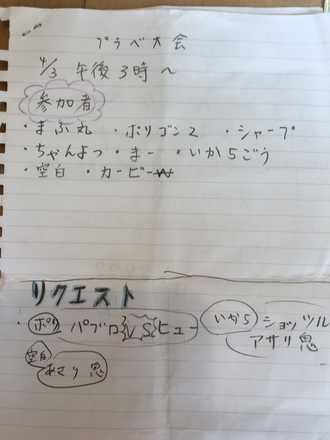 プラベ大会
4/3 午後3時〜
参加者
・まぶ丸 ・ポリゴン2 ・シャープ
・ちゃんよつ ・まー ・いか5ごう
・空白 ・カービー
リクエスト
・ポリ パブロ VS ヒュー
いか5 ショッツル
アサリ 鬼
空白